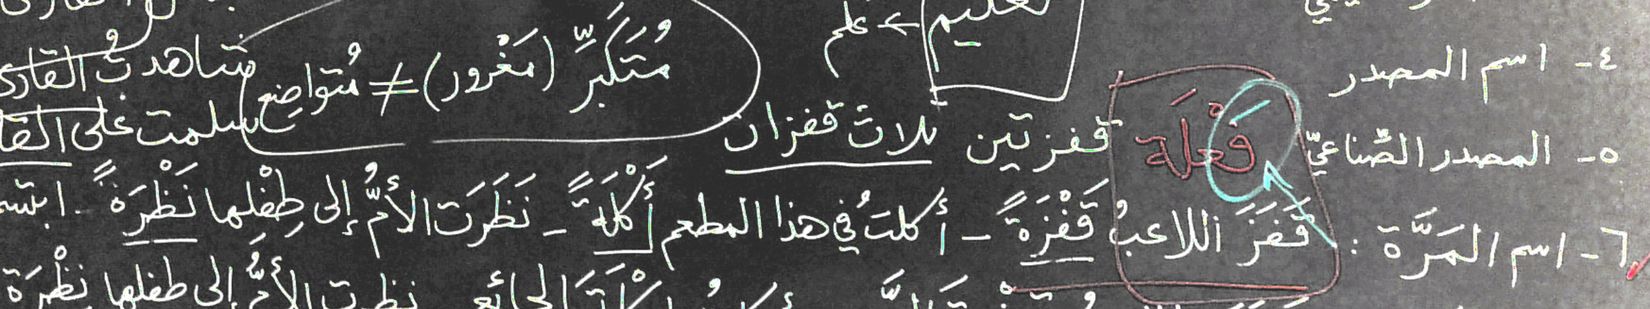 تعليم > علم
٤- اسم المصدر
مُتَكَبِّر (مَغْرور) ≠ مُتواضِع
شاهدتُ القارئ
٥- المصدر الصِّناعيّ
فَعْلَة
قفزتين ثلاث قفزات
سلمت على القا
٦- اسم المَرَّة : قَفَزَ اللاعبُ قَفْزَةً - أكلتُ في هذا المطعم أَكْلَةً - نَظَرَت الأمُّ إلى طِفْلِها نَظْرَةً - ابتس
الجائع نظرت الأمُّ إلى طفلها نِظْرَة